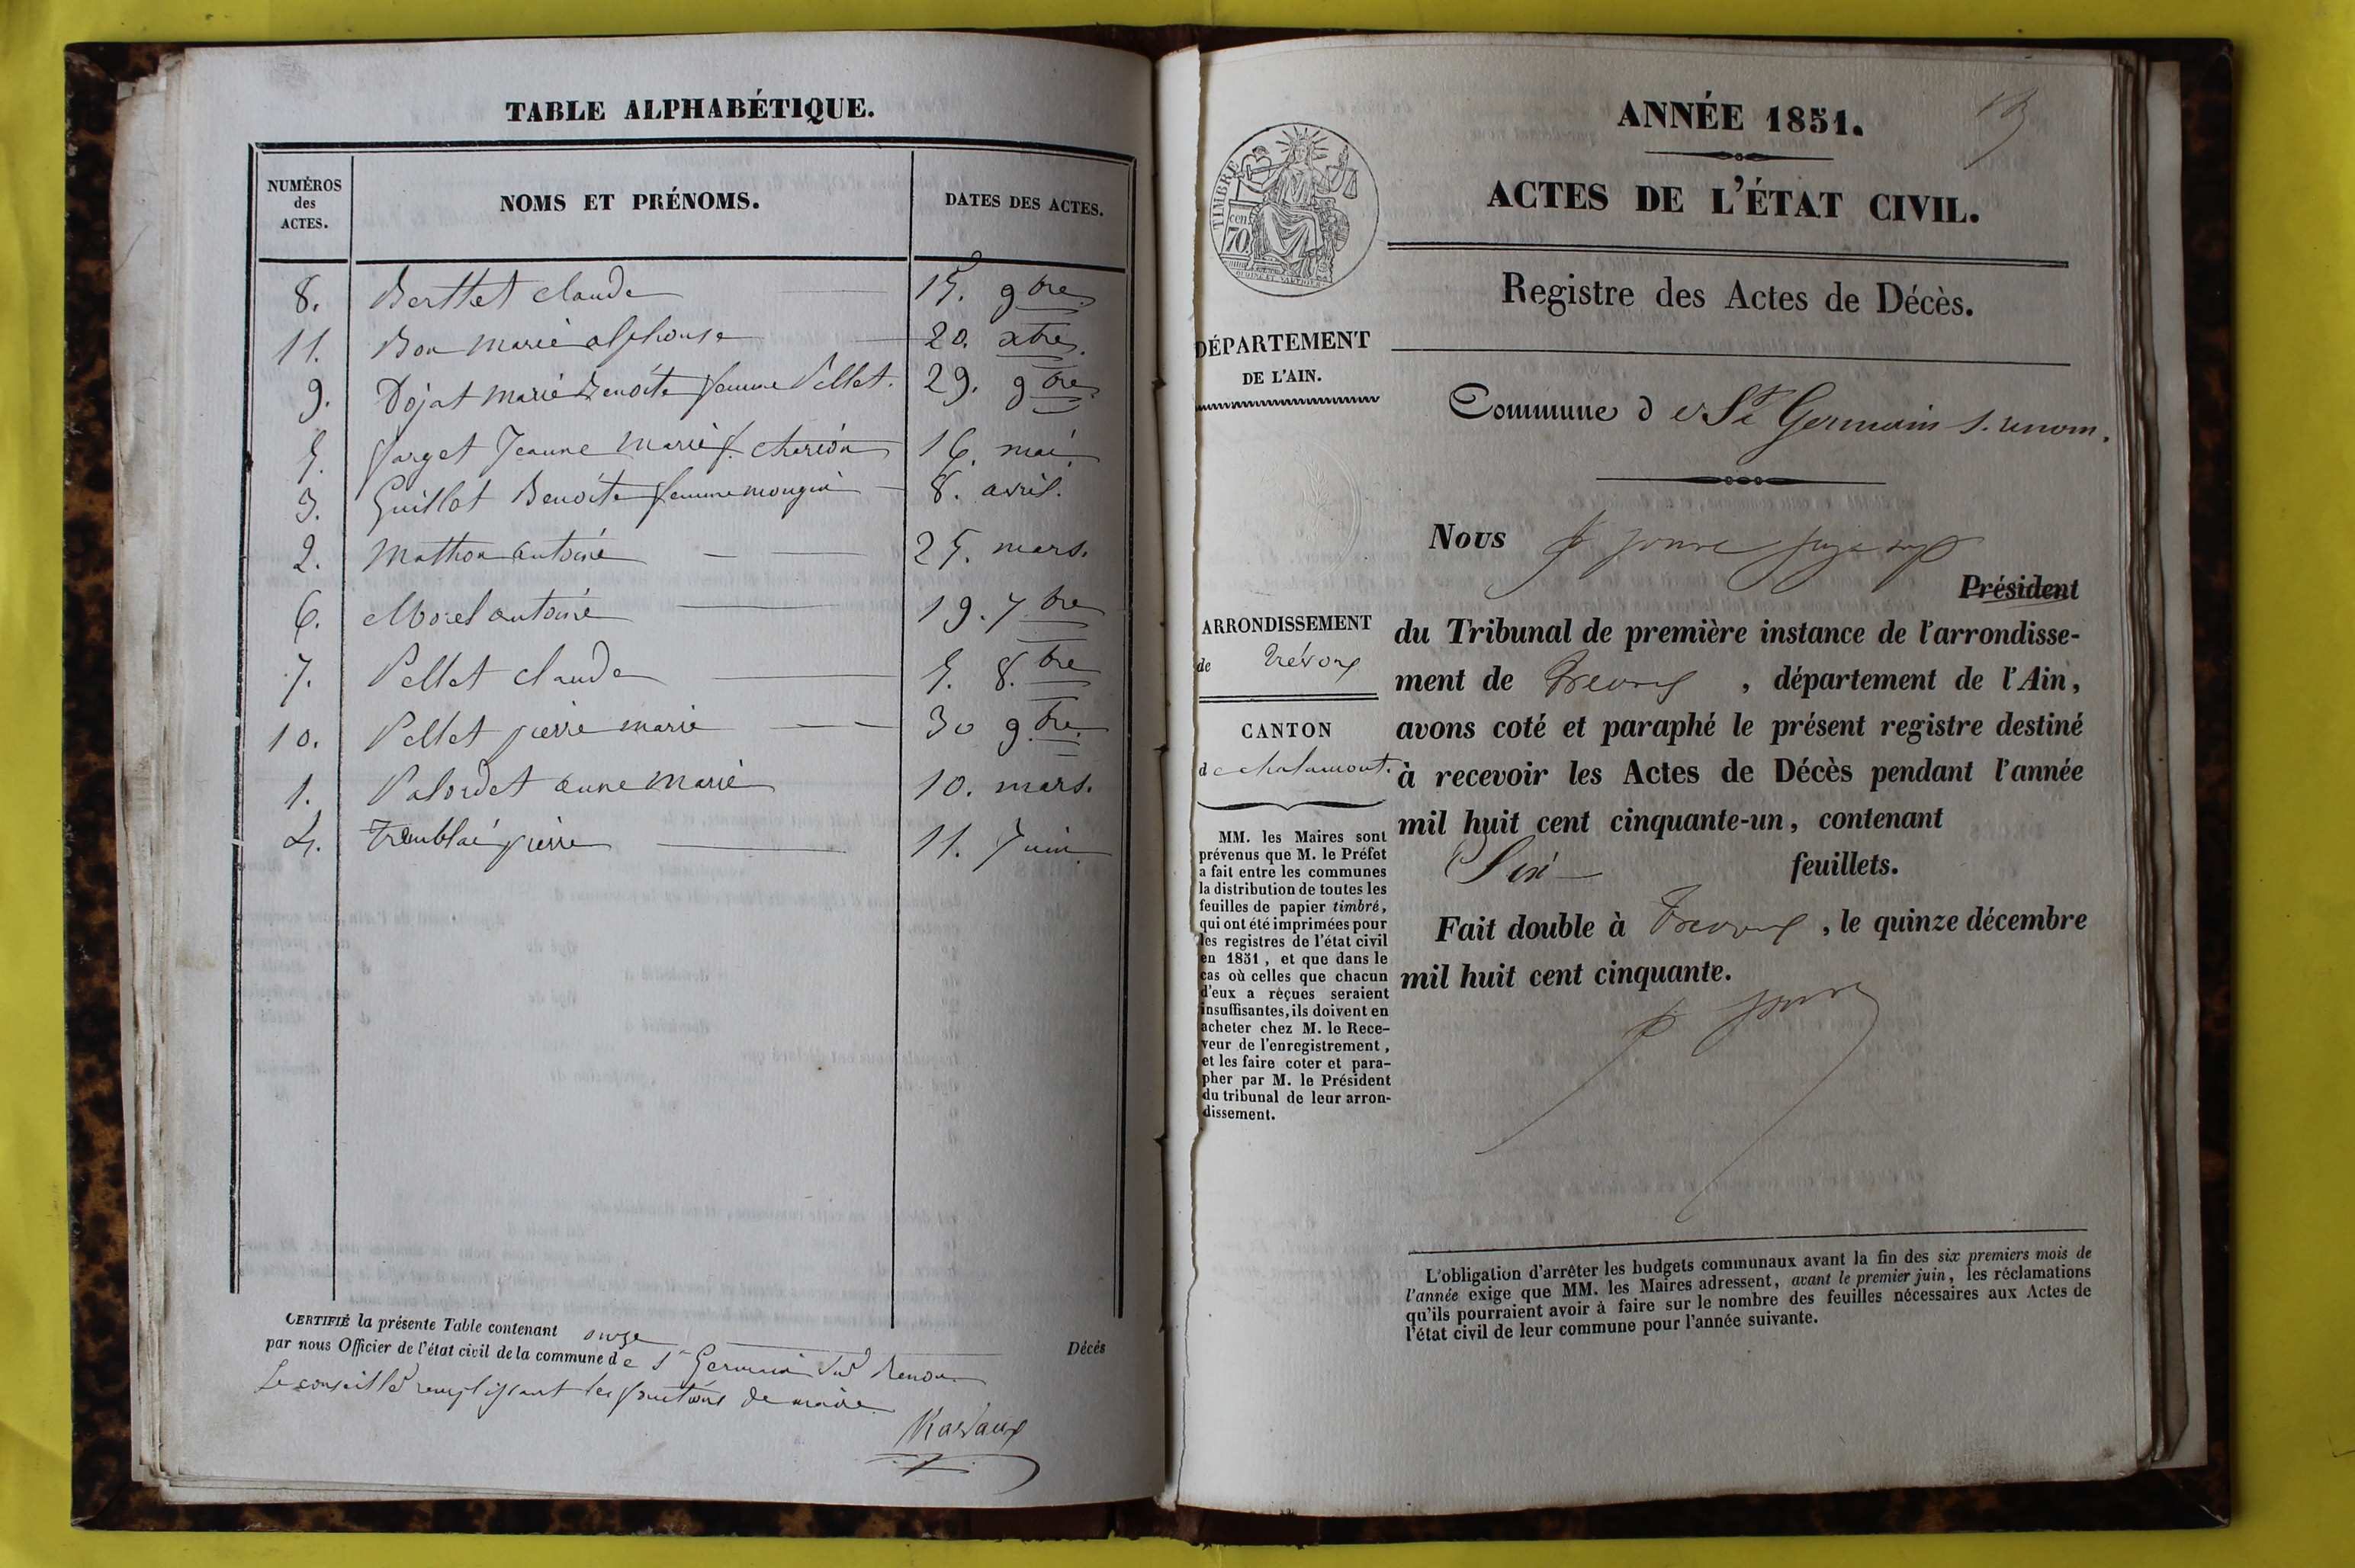 TABLE ALPHABÉTIQUE.
NUMÉROS des ACTES. NOMS ET PRÉNOMS. DATES DES ACTES.
8. Berthet claude 15. 9bre
11. Bon marie alphonse 20. xbre.
9. Dojat marie Benoite femme Pellet. 29. 9bre
5. farget Jeanne marie f. charion 16. mai.
3. Guillot Benoite femme mougin 8. avril.
2. Mathon antoine 25. mars.
6. Morel antoine 19. 7bre
7. Pellet claude 5. 8.bre
10. Pellet pierre marie 30 9.bre.
1. Palordet anne marie 10. mars.
4. Tremblai pierre 11. Juin.
CERTIFIÉ la présente Table contenant onze Décés
par nous Officier de l'état civil de la commune de St Germain sur Renon
Le conseiller remplissant les fonctions de maire
ANNÉE 1851.
ACTES DE L'ÉTAT CIVIL.
Registre des Actes de Décès.
TIMBRE
cen
70
DÉPARTEMENT
DE L'AIN.
Commune de St Germain s. renom.
Nous
Président
ARRONDISSEMENT
de Trévoux
CANTON
de chalamont.
MM. les Maires sont
prévenus que M. le Préfet
a fait entre les communes
la distribution de toutes les
feuilles de papier timbré,
qui ont été imprimées pour
les registres de l'état civil
en 1851, et que dans le
cas où celles que chacun
d'eux a réçues seraient
insuffisantes, ils doivent en
acheter chez M. le Rece-
veur de l'enregistrement,
et les faire coter et para-
pher par M. le Président
du tribunal de leur arron-
dissement.
du Tribunal de première instance de l'arrondisse-
ment de Trevoux, département de l'Ain,
avons coté et paraphé le présent registre destiné
à recevoir les Actes de Décès pendant l'année
mil huit cent cinquante-un, contenant
Six feuillets.
Fait double à Trevoux, le quinze décembre
mil huit cent cinquante.
L'obligation d'arrêter les budgets communaux avant la fin des six premiers mois de
l'année exige que MM. les Maires adressent, avant le premier juin, les réclamations
qu'ils pourraient avoir à faire sur le nombre des feuilles nécessaires aux Actes de
l'état civil de leur commune pour l'année suivante.